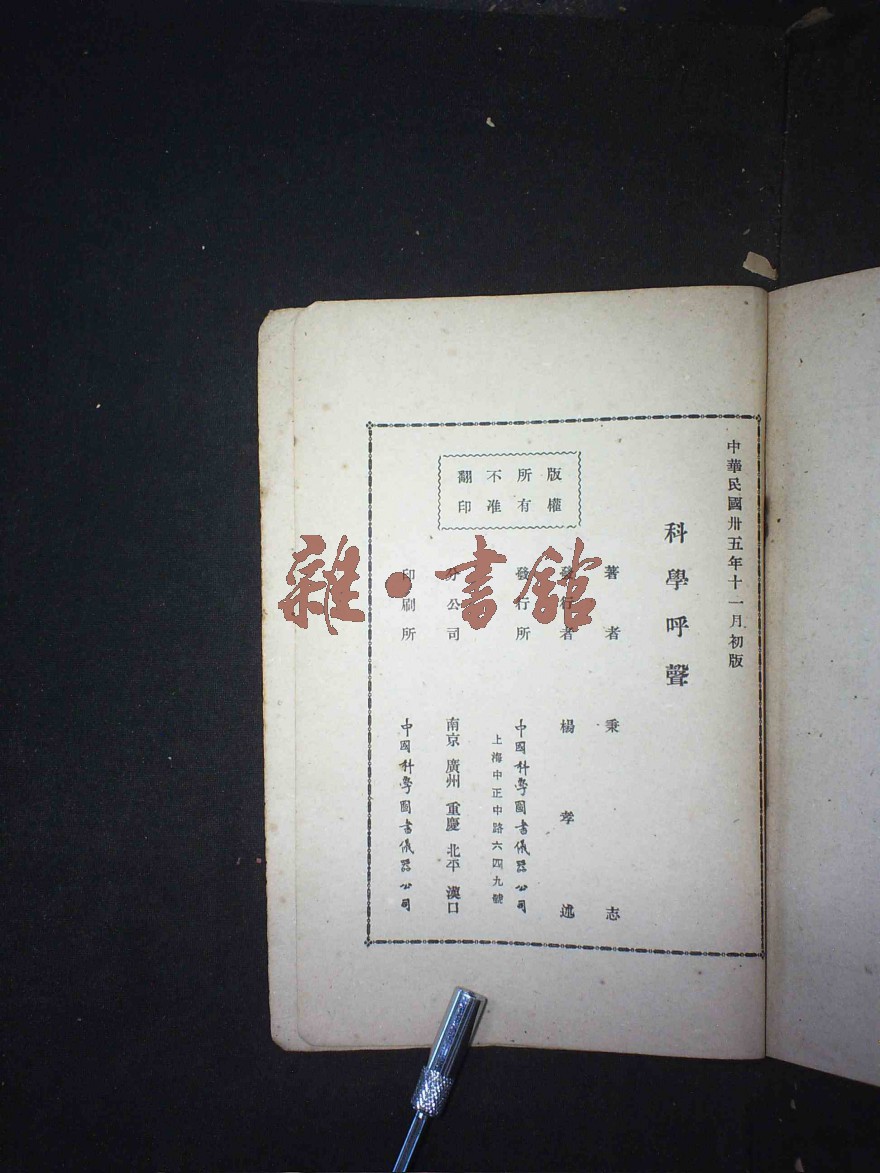 中華民國卅五年十一月初版
科學呼聲
著者 秉志
發行者 楊孝述
發行所 中國科學圖書儀器公司
上海中正中路六四九號
分公司 南京 廣州 重慶 北平 漢口
印刷所 中國科學圖書儀器公司
版權
所有
不准
翻印
雜·書館